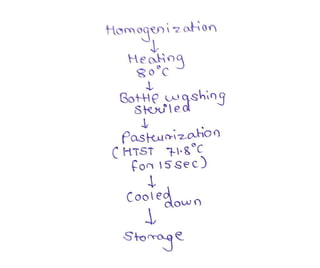 Homogenization
↓
Heating
80°C
↓
Bottle washing
steriled
↓
Pasteurization
(HTST 71.8°C
for 15 sec)
↓
Cooled
down
↓
Storage